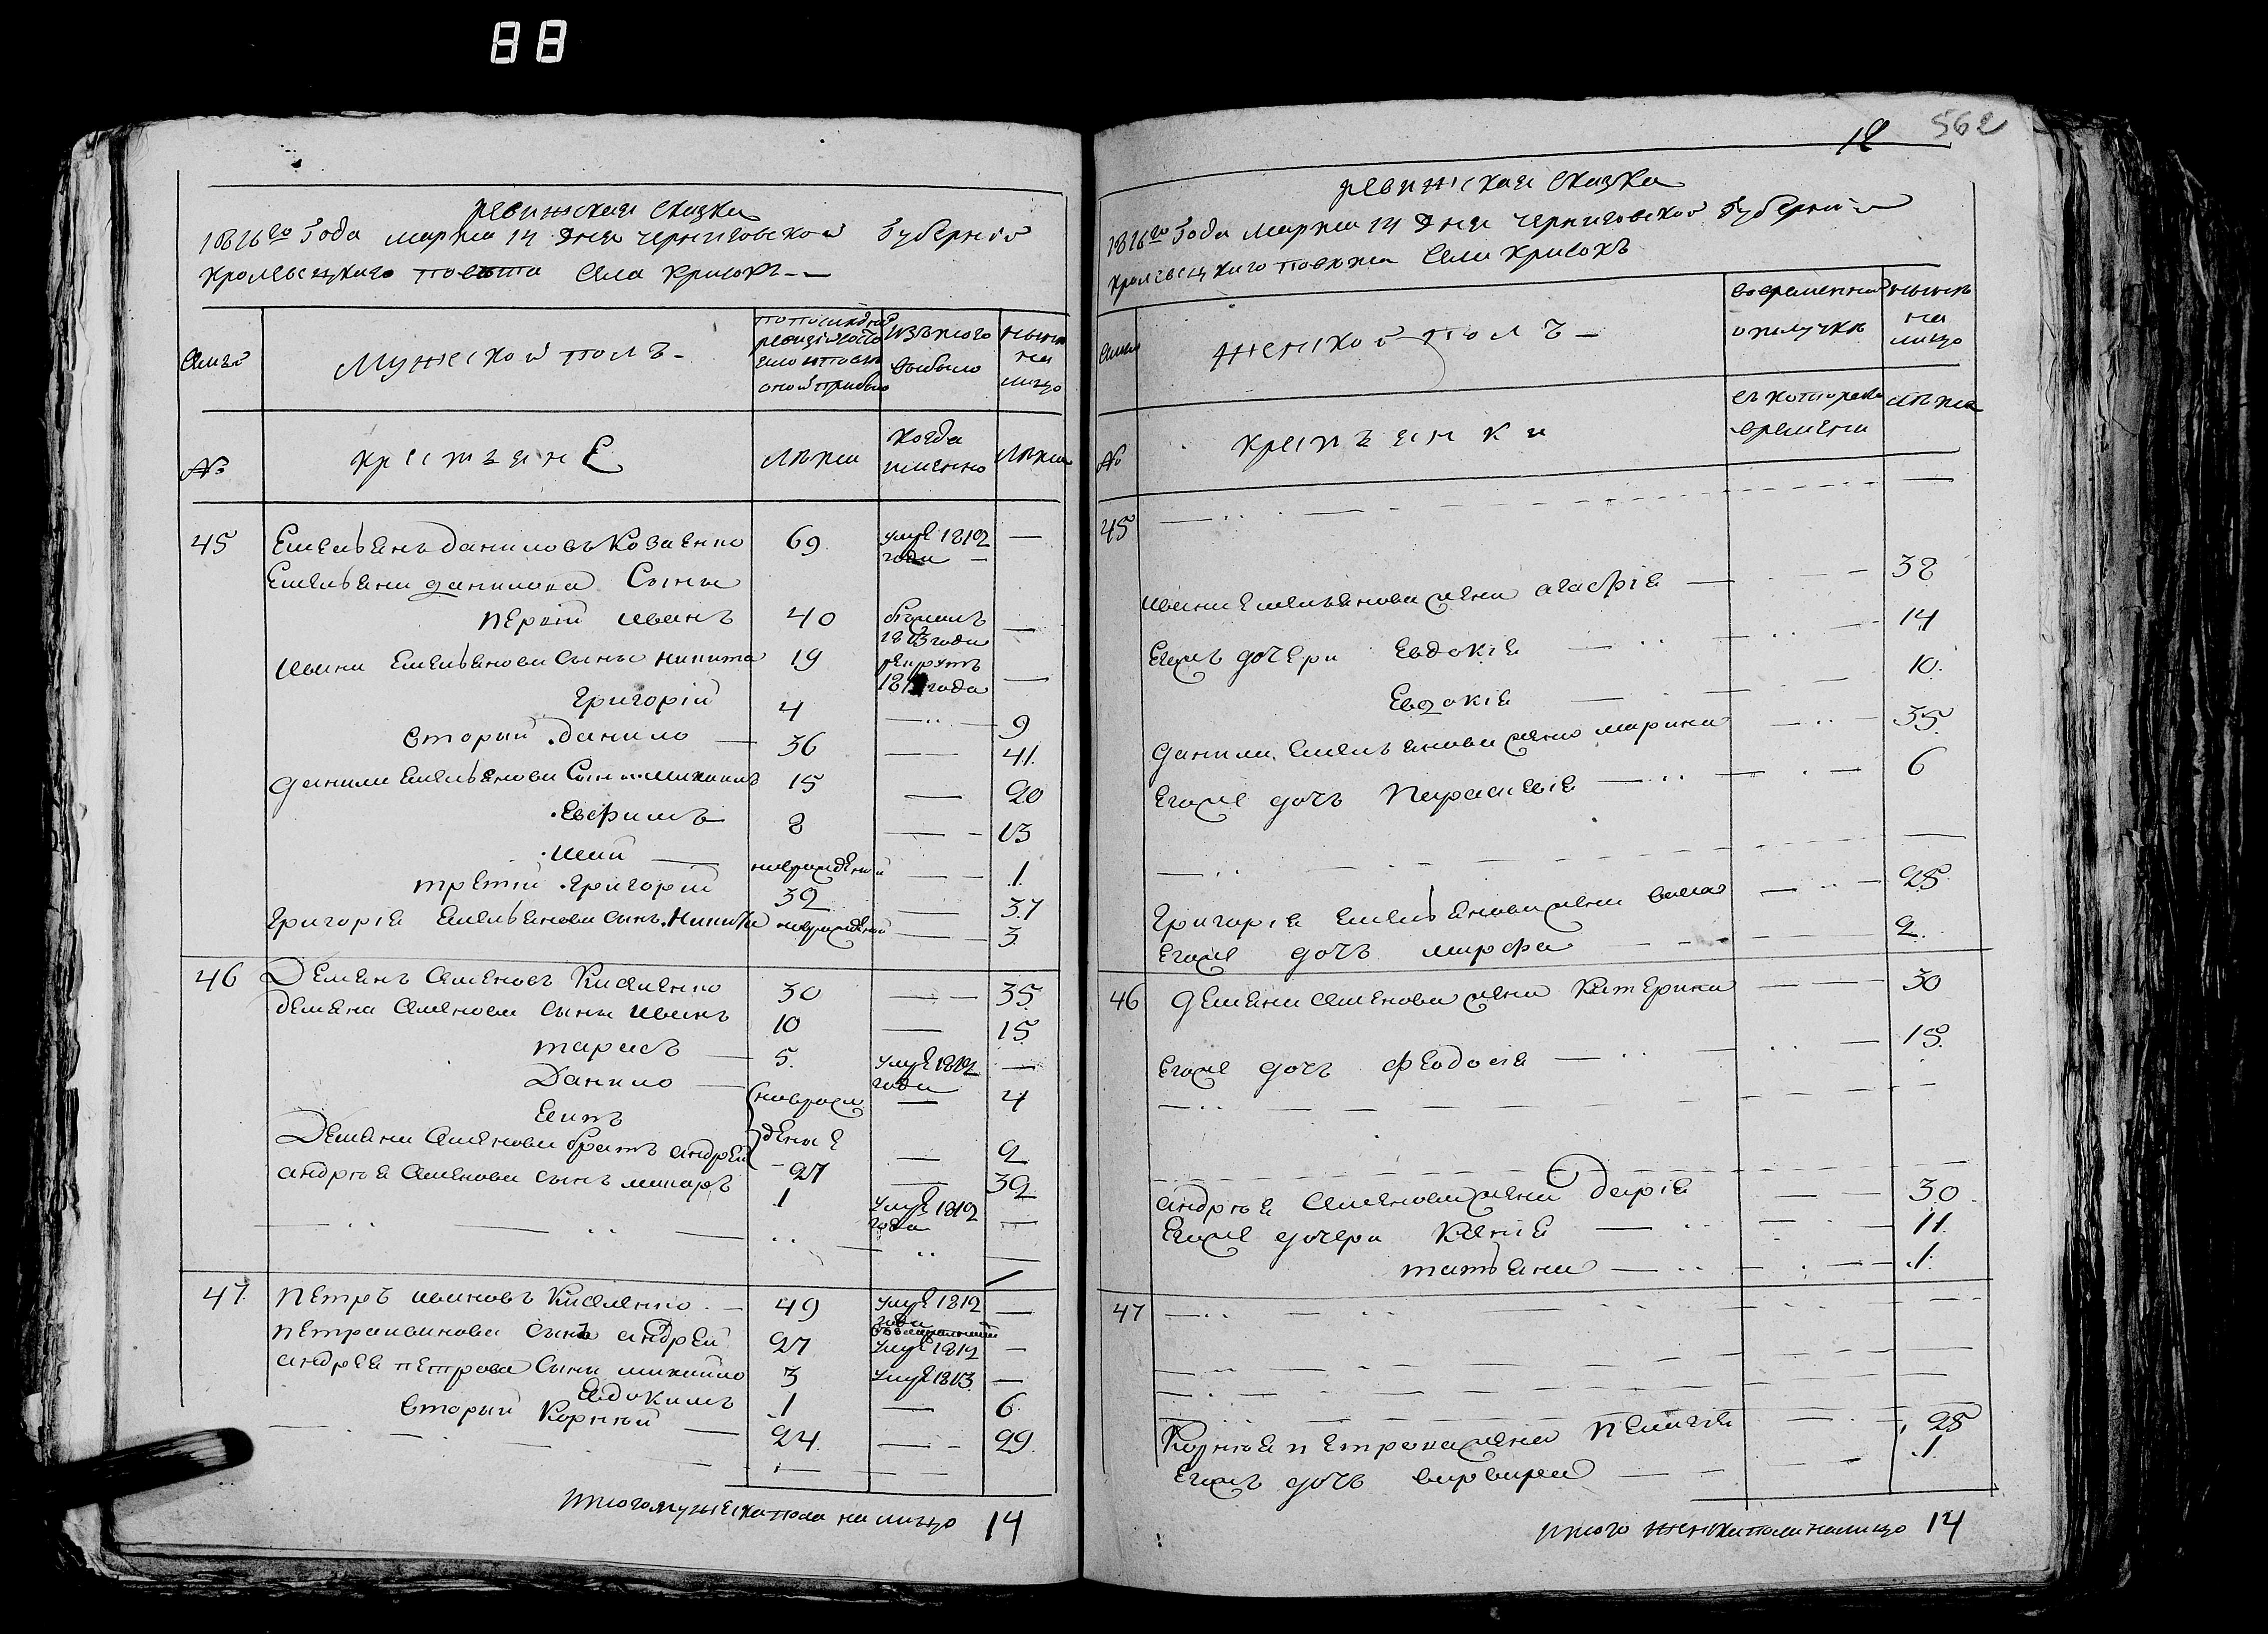 88
ревижская сказка
1816го Года марта 14 дня черниговской Губернии
кролевецкаго повета села Крисокъ
Семьи
Мужеской полъ
по последней ревизiи состояло и после оной прибыло
изъ того выбыло
ныне на лицо
№
крестьяне
лета
когда именно
лета
45 Емельянъ даниловъ Козаенко 69 умре 1812 года —
Емельяна данилова Сыны
первiй иванъ 40 1813 года —
ивана Емельянова сыны никита 19 рекрутъ года —
григорiй 4 — 9
вторый данило 36 — 41
данила Емельянова Сыны михаилъ 15 — 20
Евфимъ 8 — 13
новорожденый — 1
третiй григорiй 32 — 37
григорiя Емельянова сынъ Никита новорожденый — 3
46 Демянъ Семеновъ Киселенко 30 — 35
демяна Семенова сыны иванъ 10 — 15
тарасъ 5 умре 1812 года —
Данило новорож — 4
дены е — 2
Демяна Семенова братъ андрей 27 — 32
андрея Семенова сынъ макаръ 1 умре 1812 года —
47 петръ ивановъ Киселенко 49 умре 1812 года —
петра иванова сынъ андрей 27 умре 1812 —
андрея петрова Сыны михайло 3 умре 1813 —
Евдокимъ 1 — 6
вторый Корней 24 — 29
итого мужеска пола на лицо 14
12 562
ревижская сказка
1816го Года марта 14 дня черниговской Губернии
кролевецкаго повета села Крисокъ
Семьи
женской полъ
во временной отлучке
ныне на лицо
№
крестьянки
съ котораго времени
лета
45
ивана Емельянова жена агафiя — 38
Егожъ дочери Евдокiя — 14
Евдокiя — 10
данила Емельянова жена марина — 35
Егоже дочь параскевiя — 6
григорiя Емельянова жена васса — 25
Егоже дочь марфа — 2
46 демяна Семенова жена Катерина — 30
Егоже дочь феодосiя — 15
андрея Семенова жена дарiя — 30
Егоже дочери Ксенiя — 11
татьяна — 1
47
Корнея петрова жена пелагея — 25
Егожъ дочь варвара — 1
итого женска пола налицо 14